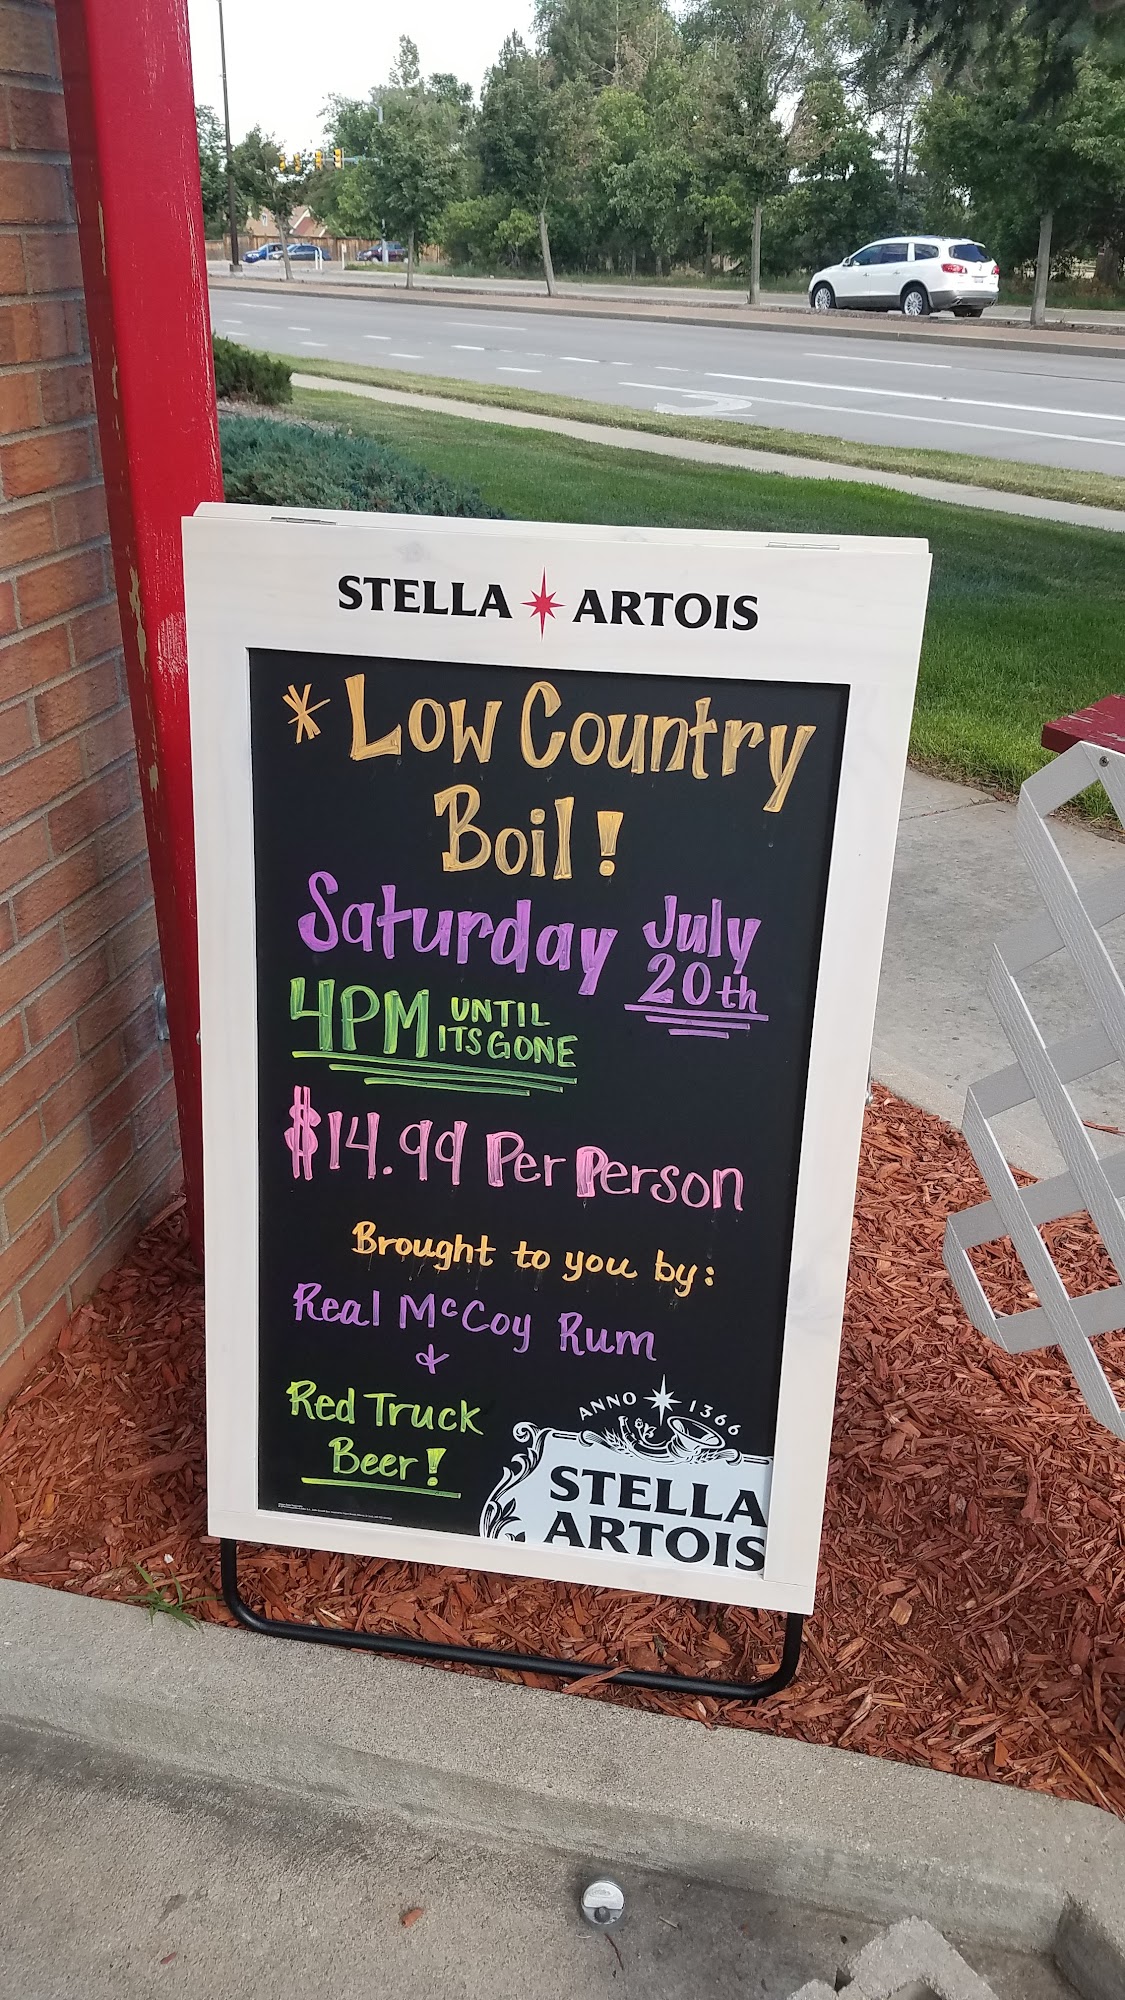 STELLA ARTOIS
* Low Country
Boil!
Saturday July
20th
4PM UNTIL
ITS GONE
$14.99 Per Person
Brought to you by:
Real McCoy Rum
&
Red Truck
Beer!
ANNO 1366
STELLA
ARTOIS